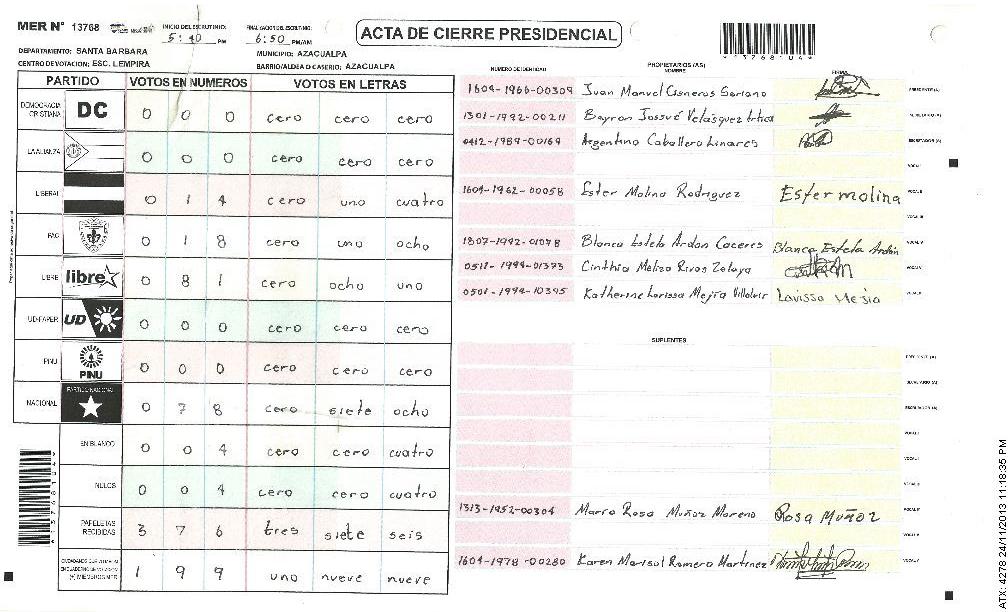 MER N° 13768
INICIO DEL ESCRUTINIO: 5:40 PM
FINALIZACION DEL ESCRUTINIO: 6:50 PM/AM
ACTA DE CIERRE PRESIDENCIAL
*13768104*
DEPARTAMENTO: SANTA BARBARA
MUNICIPIO: AZACUALPA
CENTRO DE VOTACION: ESC. LEMPIRA
BARRIO/ALDEA O CASERIO: AZACUALPA
PARTIDO VOTOS EN NUMEROS VOTOS EN LETRAS
DEMOCRACIA CRISTIANA DC 0 0 0 cero cero cero
LA ALIANZA 0 0 0 cero cero cero
LIBERAL 0 1 4 cero uno cuatro
PAC 0 1 8 cero uno ocho
LIBRE libre 0 8 1 cero ocho uno
UD-FAPER UD 0 0 0 cero cero cero
PINU PINU 0 0 0 cero cero cero
NACIONAL PARTIDO NACIONAL 0 7 8 cero siete ocho
EN BLANCO 0 0 4 cero cero cuatro
NULOS 0 0 4 cero cero cuatro
PAPELETAS RECIBIDAS 3 7 6 tres siete seis
1 9 9 uno nueve nueve
NUMERO DE IDENTIDAD PROPIETARIOS (AS) NOMBRE FIRMA
1604-1966-00309 Juan Manuel Cisneros Soriano PRESIDENTE (A)
1301-1992-00211 Bayron Jossué Velásquez SECRETARIO (A)
0412-1989-00169 Argentina Caballero Linares ESCRUTADOR (A)
VOCAL I
1604-1962-00058 Ester Molina Rodriguez Ester molina VOCAL II
VOCAL III
1807-1992-01078 Blanca Estela Ardon Caceres Blanca Estela Ardón VOCAL IV
0511-1994-01373 Cinthia Meliza Rivas Zelaya VOCAL V
0501-1994-10395 Katherine Larissa Mejía Larissa Mejia
SUPLENTES
PRESIDENTE (A)
SECRETARIO (A)
ESCRUTADOR (A)
VOCAL I
VOCAL II
VOCAL III
1313-1952-00304 Maria Rosa Muñoz Moreno Rosa Muñoz VOCAL IV
VOCAL V
1604-1978-00280 Karen Marisol Romero Martinez
ATX: 4278 24/11/2013 11:18:35 PM